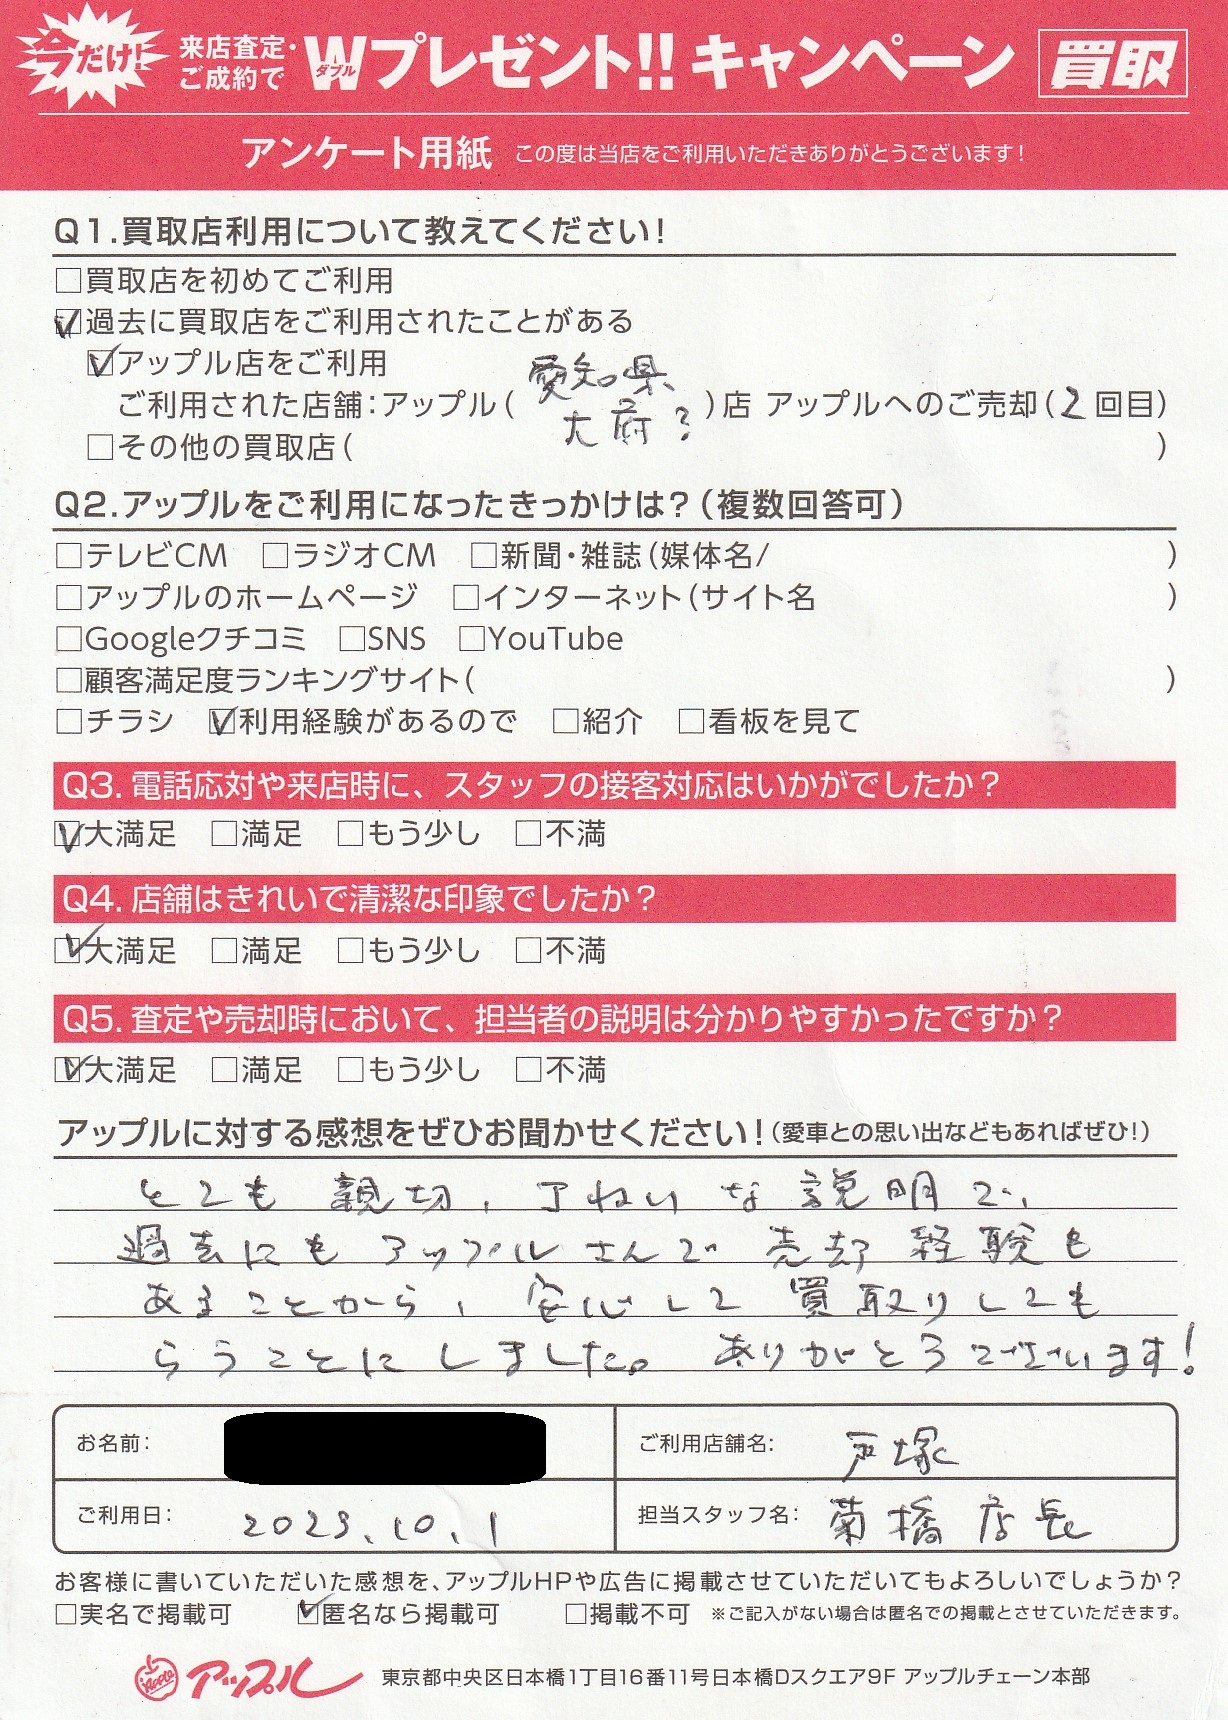 今だけ!
来店査定・
ご成約で
Wプレゼント!!キャンペーン
ダブル
買取
アンケート用紙 この度は当店をご利用いただきありがとうございます!
Q1.買取店利用について教えてください!
□買取店を初めてご利用
☑過去に買取店をご利用されたことがある
☑アップル店をご利用
愛知県
ご利用された店舗:アップル( 大府? )店 アップルへのご売却(2回目)
□その他の買取店( )
Q2.アップルをご利用になったきっかけは?(複数回答可)
□テレビCM □ラジオCM □新聞・雑誌(媒体名/ )
□アップルのホームページ □インターネット(サイト名 )
□Googleクチコミ □SNS □YouTube
□顧客満足度ランキングサイト( )
□チラシ ☑利用経験があるので □紹介 □看板を見て
Q3. 電話応対や来店時に、スタッフの接客対応はいかがでしたか?
☑大満足 □満足 □もう少し □不満
Q4. 店舗はきれいで清潔な印象でしたか?
☑大満足 □満足 □もう少し □不満
Q5. 査定や売却時において、担当者の説明は分かりやすかったですか?
☑大満足 □満足 □もう少し □不満
アップルに対する感想をぜひお聞かせください!(愛車との思い出などもあればぜひ!)
とても親切、丁ねいな説明で、
過去にもアップルさんで売却経験も
あることから、安心して買取りしても
らうことにしました。ありがとうございます!
お名前: ご利用店舗名: 戸塚
ご利用日: 2023.10.1 担当スタッフ名: 菊橋店長
お客様に書いていただいた感想を、アップルHPや広告に掲載させていただいてもよろしいでしょうか?
□実名で掲載可 ☑匿名なら掲載可 □掲載不可 ※ご記入がない場合は匿名での掲載とさせていただきます。
Apple アップル 東京都中央区日本橋1丁目16番11号日本橋Dスクエア9F アップルチェーン本部